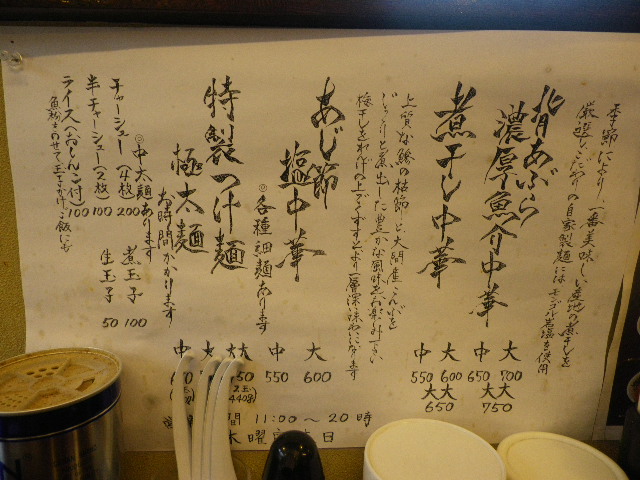 季節により、一番美味しい産地の煮干しを
厳選。こだわりの自家製麺にはモンゴル岩塩を使用
背あぶら
濃厚魚介中華
大 700
中 650
大大 750
煮干し中華
大 600
中 550
大大 650
上質な鯵の枯節と大間産こんぶを
じっくりと煮出した豊かな風味をお楽しみ下さい
梅干しをれんげの上でくずすとより一層深い味わいになります
あじ節
塩中華
大 600
中 550
◎各種細麺あります
特製つけ麺
極太麺
お時間かかります
◎中太麺あります
大大
中
11:00〜20時
木曜
チャーシュー(4枚) 200
半チャーシュー(2枚) 100
ライス(のりたくあん付) 100
魚粉をのせて玉子かけご飯にも
煮玉子 100
生玉子 50